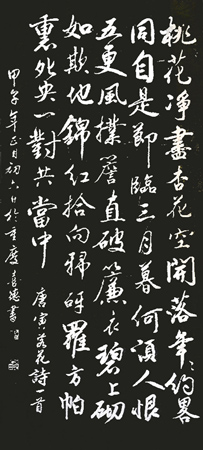 桃花淨盡杏花空開落年年約畧
同自是節臨三月暮何須人恨
五更風撲簷直破簾衣碧上砌
如欺他錦紅拾向掃時羅方帕
裹鴛鴦一對共當中
唐寅落花詩一首
甲午年正月初六日於重慶 書